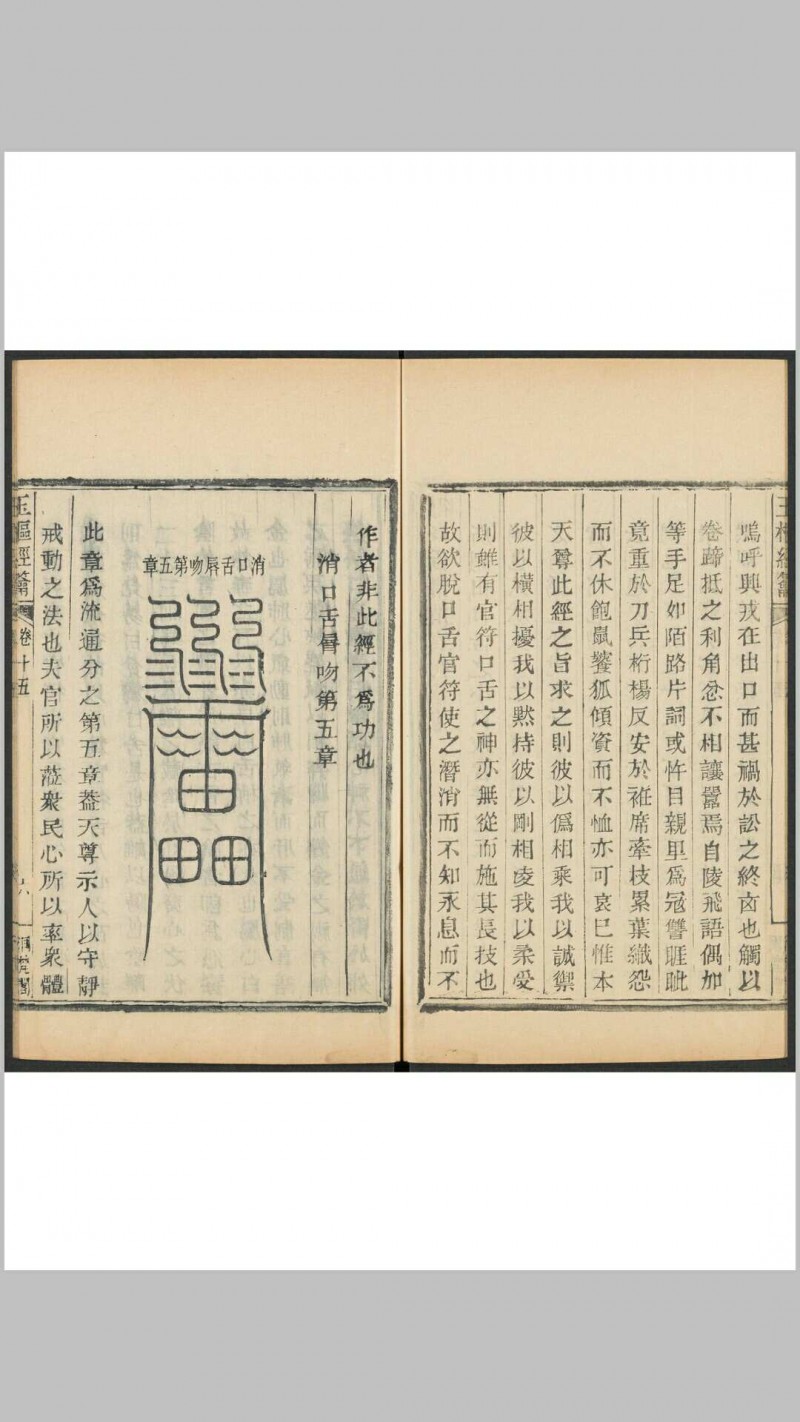 嗚呼興戎在出口而甚禍於訟之終卤也觸以
卷蹄抵之利角忿不相讓囂焉自陵飛語偶加
等手足如陌路片詞或忤目親里爲冦讐睚眦
竟重於刀兵桁楊反安於袵席牽枝累葉織怨
而不休飽鼠饕狐傾資而不恤亦可哀巳惟本
天尊此經之旨求之則彼以僞相乘我以誠禦
彼以橫相擾我以默持彼以剛相凌我以柔受
則雖有官符口舌之神亦無從而施其長技也
故欲脫口舌官符使之潛消而不知永息而不
作者非此經不爲功也
消口舌脣吻第五章
消口舌脣吻第五章
此章爲流通分之第五章葢天尊示人以守靜
戒動之法也夫官所以蒞衆民心所以率衆體
玉樞經籥
卷十五